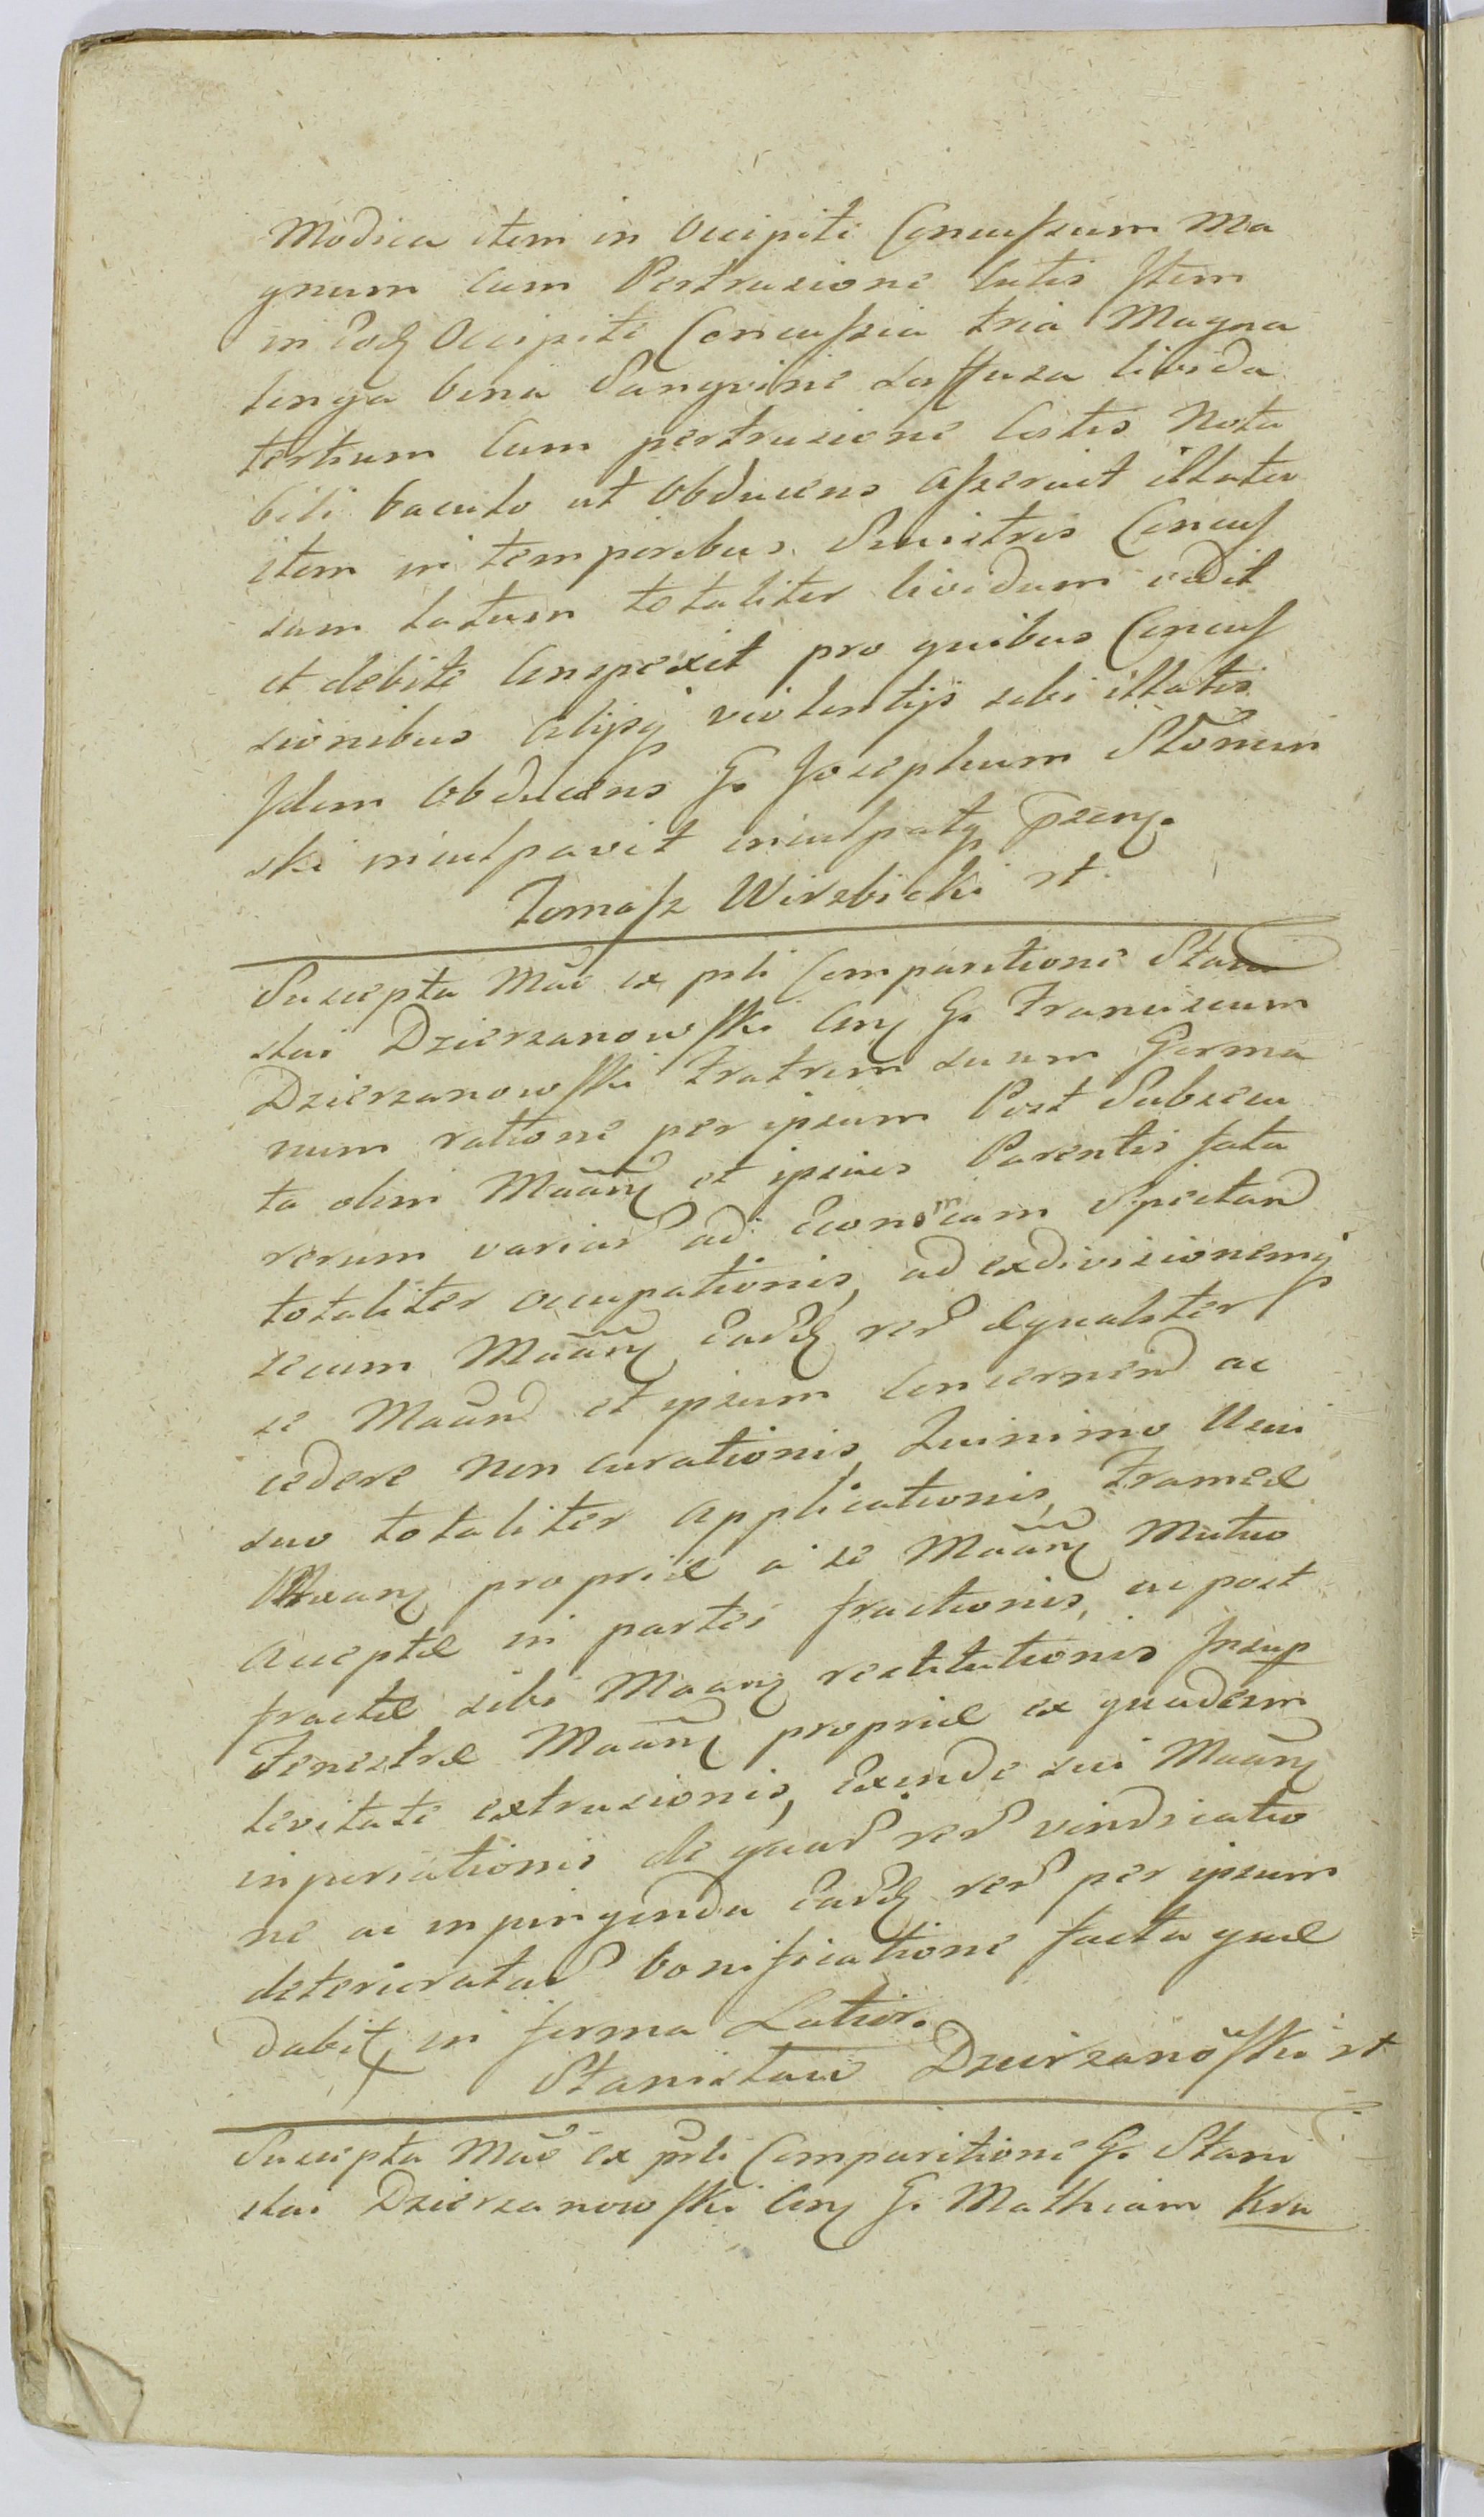 Modica item in Occipite Concussum Ma
gnum cum Pertrusione Cutis Item
in Eodq Occipite Concussia tria Magna
longa bina Sangvine suffusa livida
tertium cum pertrusione Cutis Nota
bili baculo ut Obducens asseruit illata
item in temporibus Sinistris Concus
sum latum totaliter lividum vidit
et debite Conspexit pro quibus Concus
sionibus alijsq violentijs sibi illatis
Idem Obducens G. Josephum Słomin
ski inculpavit inculpatq pszenq.
Tomasz Wirzbicki st
Suscepta Mãe ex prli Comparitione Stani
slai Dzierzanowski Conq G. Franciscum
Dzierzanowski Fratrem suum Germa
num ratione per ipsum Post Subsecu
ta olim Maãnq et ipsius Parentis fata
rerum variar ad Economicam Spectand
totaliter occupationis, ad exdivisionemq
secum Maãnq Earq rer Equaliter
se Maãnd et ipsum Concernend ac
cedere non curationis, Quinimo Usui
suo totaliter applicationis, Frameæ
Maanq propriæ a se Maãnq Mutuo
acceptæ in partes fractionis, ac post
fractæ sibi Maanq restitutionis Insup
Fenestræ Maãnq propriæ ex quadam
levitate extrusionis, Exinde sui Maãnq
injuriationis de quar rer vindicatio
ne ac inpingenda Earq rer per ipsum
deterioratar bonificatione facta quæ
dabit in forma Latior.
Stanisław Dzierzanoski st
Suscepta Mãe ex prli Comparitione G. Stani
slai Dzierzanowski Conq G. Mathiam Kru